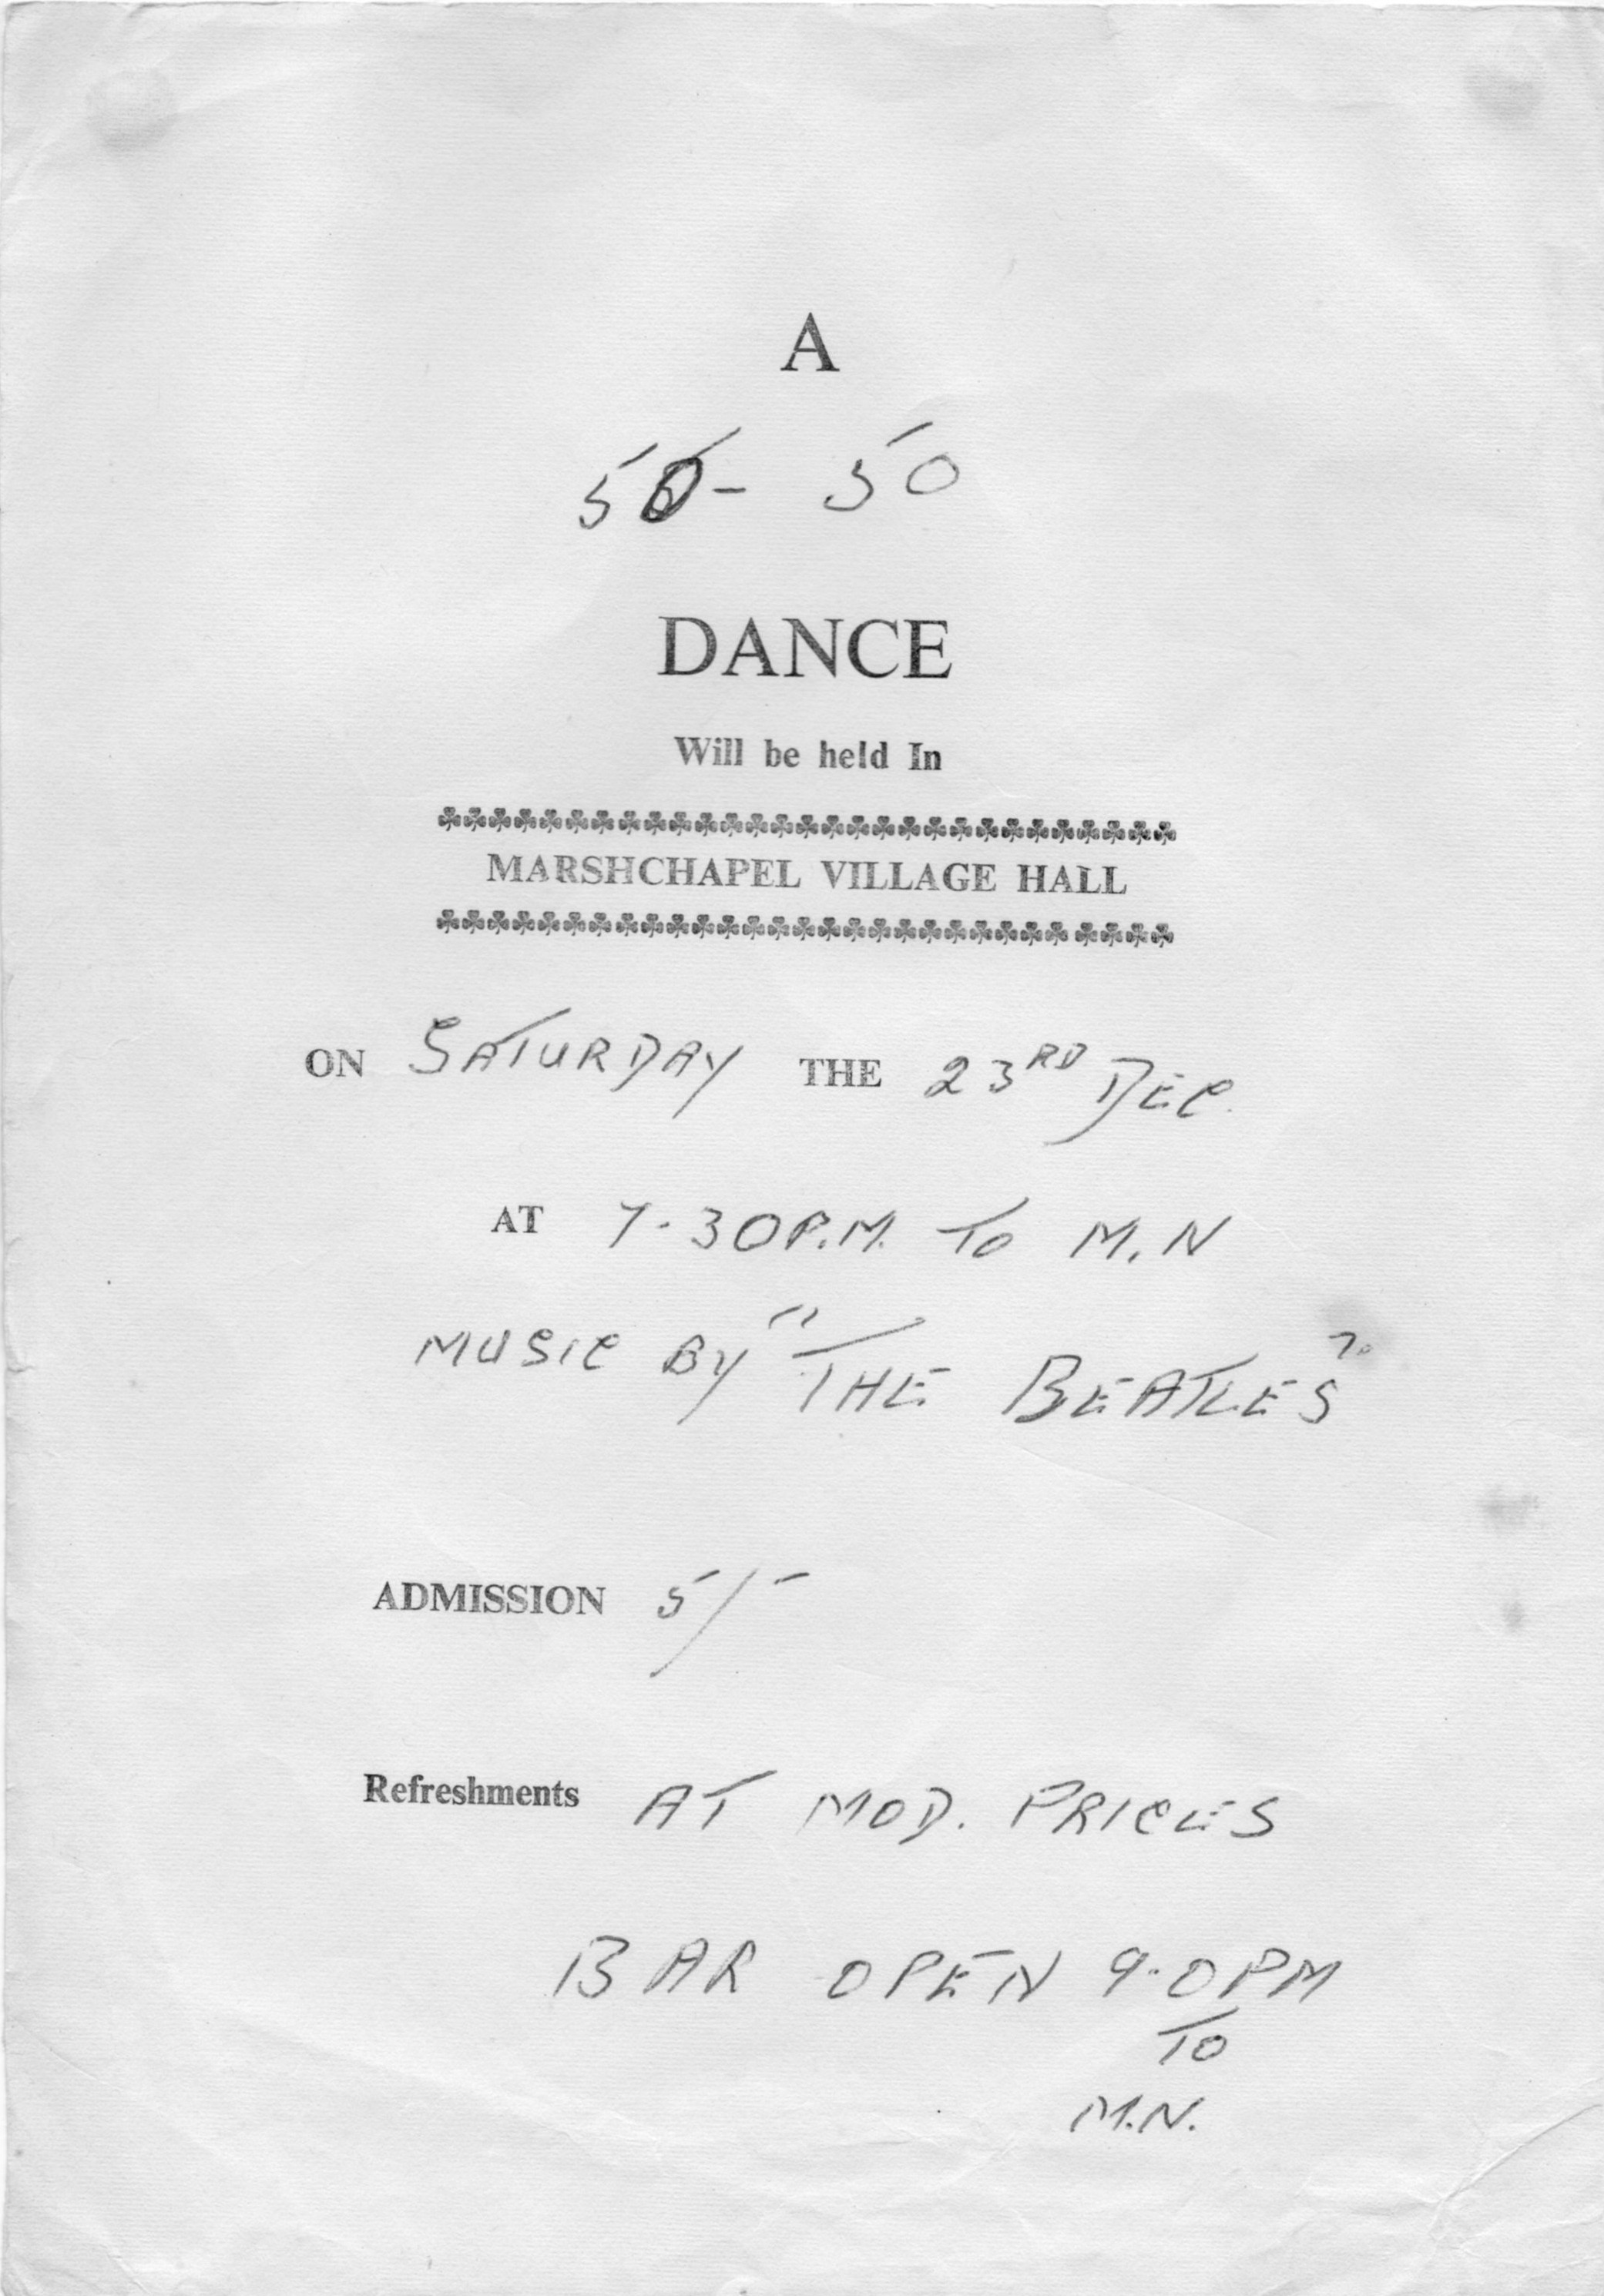 A
50 - 50
DANCE
Will be held In
MARSHCHAPEL VILLAGE HALL
ON SATURDAY THE 23RD DEC.
AT 7.30P.M. TO M.N
MUSIC BY "THE BEATLES"
ADMISSION 5/-
Refreshments AT MOD. PRICES
BAR OPEN 9.0PM
TO
M.N.